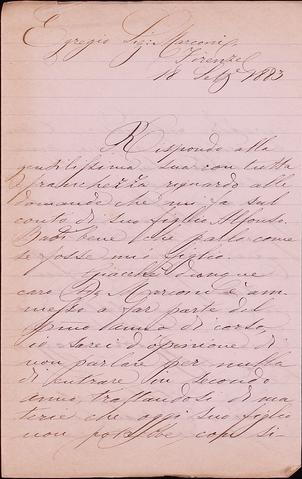 Egregio Sig. Marconi,
Firenze
18 1883
Rispondo alla
gentilissima sua con tutta
franchezza riguardo alle
domande che mi fa sul
conto di suo figlio Alfonso.
Badi bene che parlo come
se fosse mio figlio.
Giacchè dunque
caro Sig. Marconi è am-
messo a far parte del
primo anno di corso,
io sarei d'opinione di
non parlare per nulla
di entrare in secondo
anno, trattandosi di ma
terie che oggi suo figlio
non potrebbe, così si-